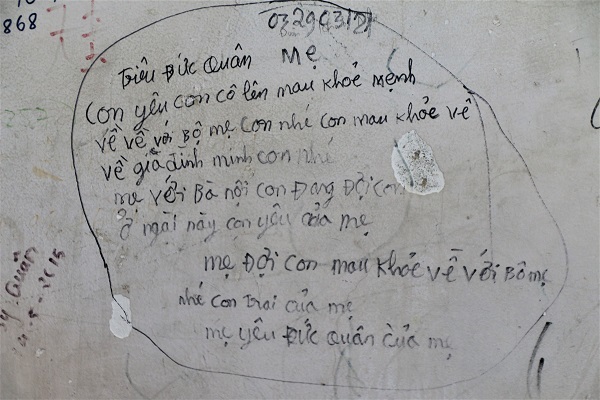 868
Mẹ
Triêu Đức Quân
Con yêu con cô lên mau khoẻ mệnh
về về với Bộ mẹ con nhé con mau khỏe về
về giả đình mình con nhé
mẹ với Bà nội con Đang Đợi con
ở ngài này con yêu của mẹ
mẹ Đợi con mau khỏe về với Bô mẹ
nhé con trai của mẹ
mẹ yêu Đức Quân của mẹ
Quân